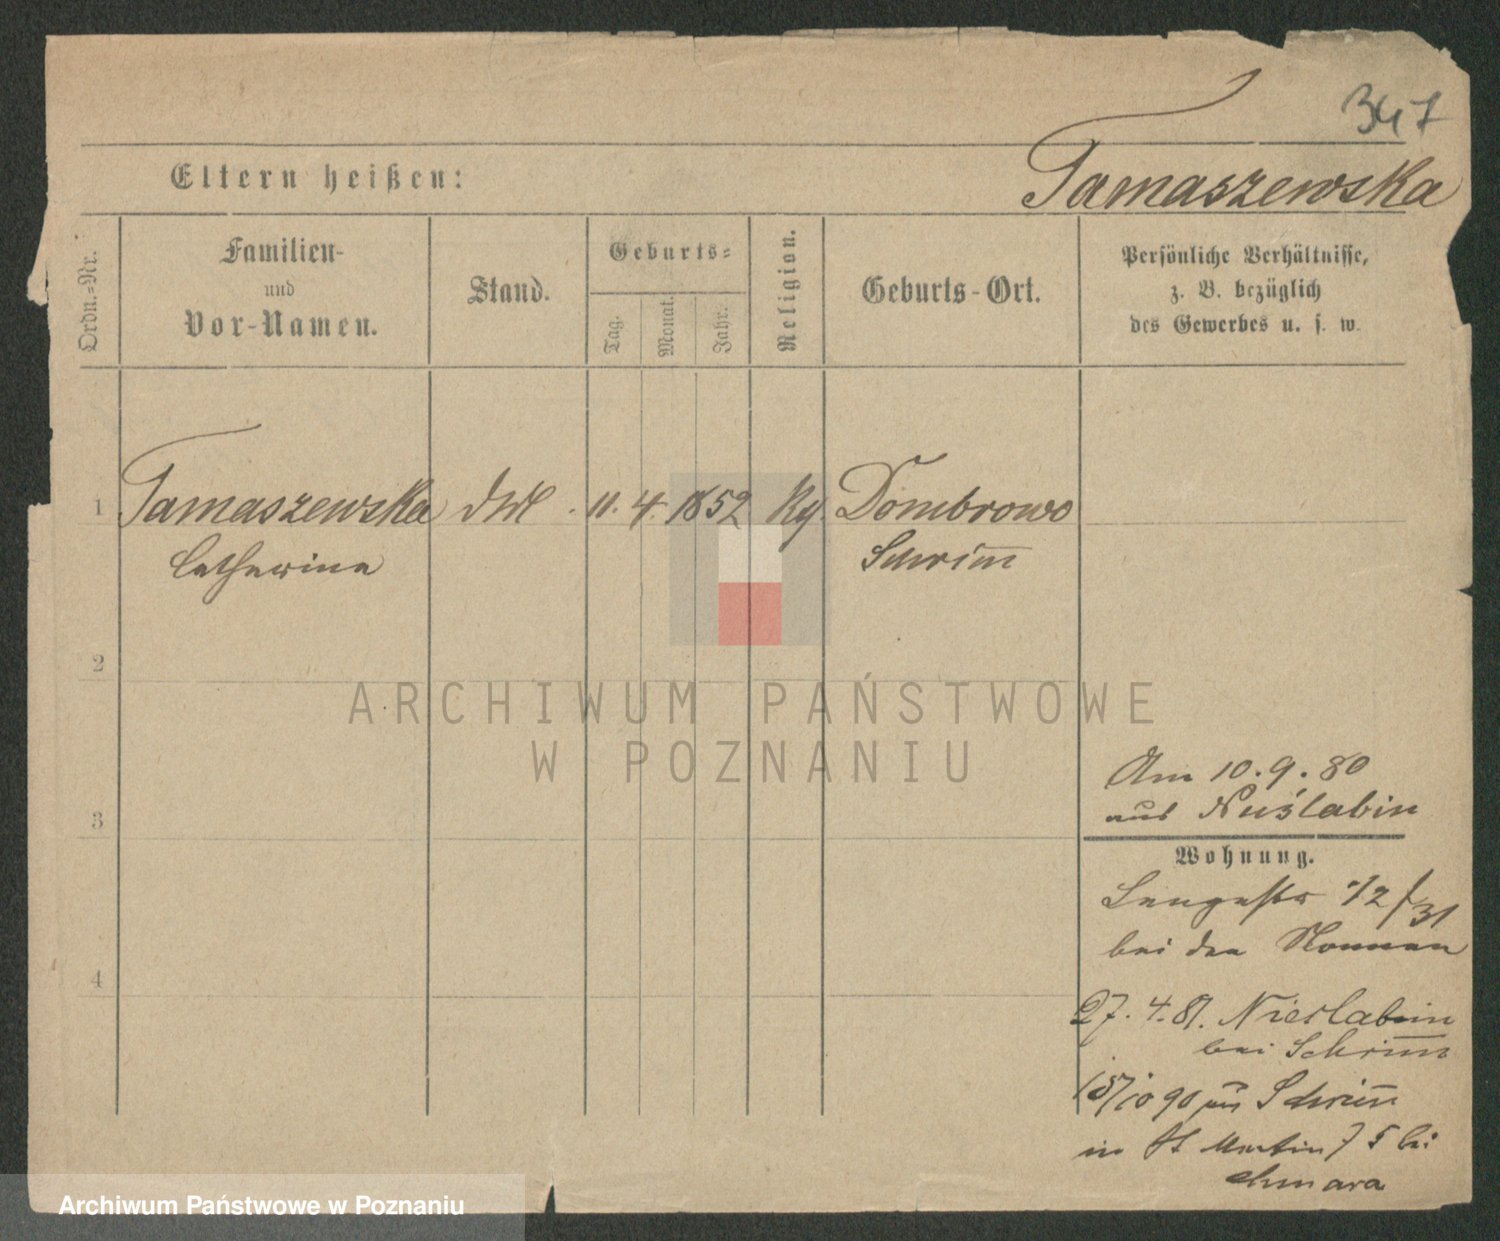 347
Eltern heißen:
Tamaszewska
Ordn.-Nr.
Familien-
und
Vor-Namen.
Stand.
Geburts-
Tag.
Monat.
Jahr.
Religion.
Geburts-Ort.
Persönliche Verhältnisse,
z. B. bezüglich
des Gewerbes u. s. w.
1 Tamaszewska 11. 4. 1852 Dombrowo
Catharina Schrim̅
2
3
4
Am 10.9.80
aus
Wohnung.
Langestr
bei den Nonnen
27. 4. 81. Nieslabin
bei Schrimm
15/10 90 Schrim̅
in St Martin 75 bei
ARCHIWUM PAŃSTWOWE
W POZNANIU
Archiwum Państwowe w Poznaniu